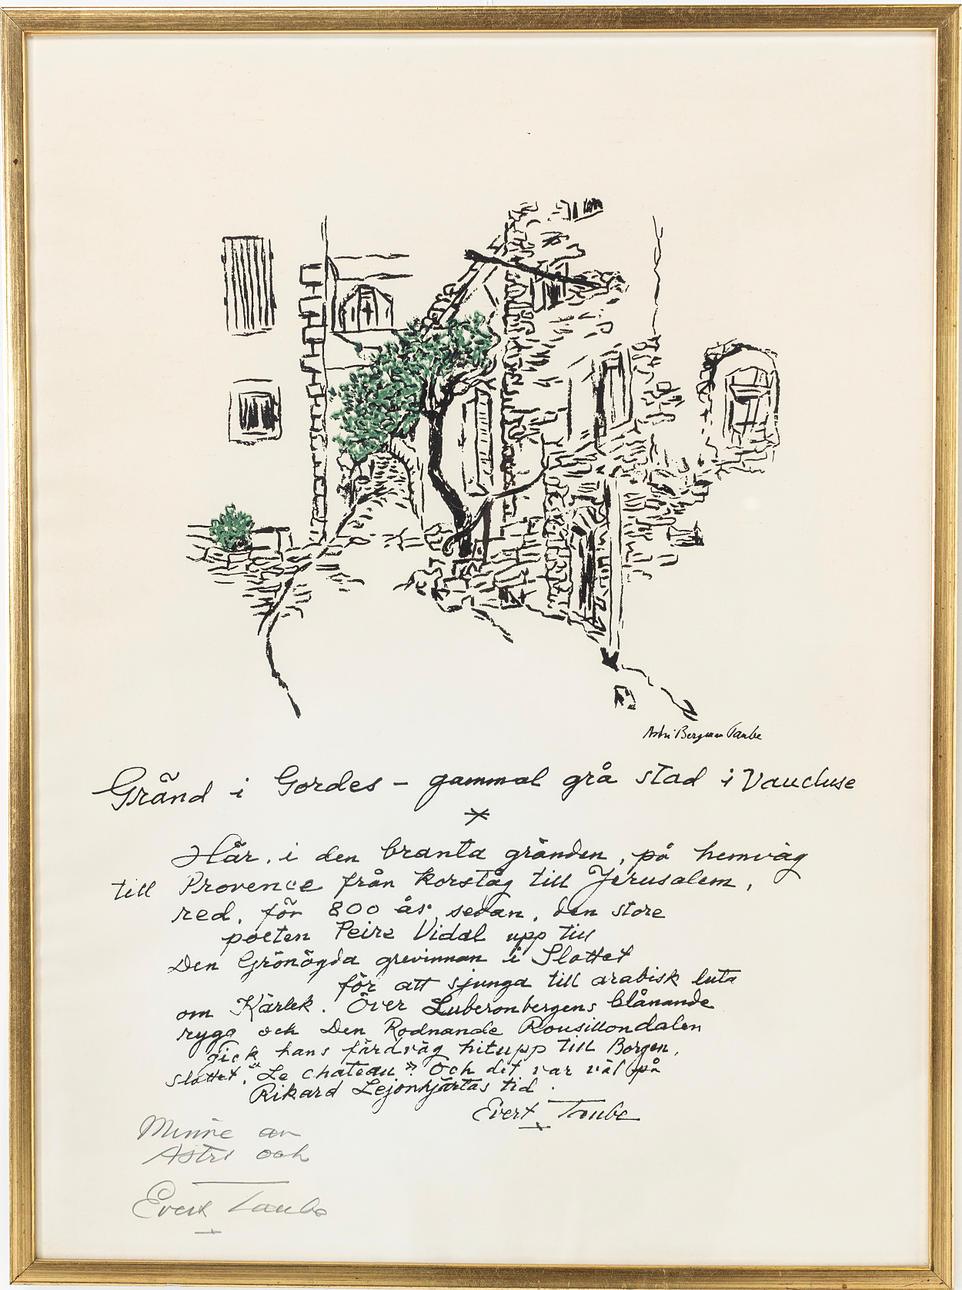 Astri Bergman Taube
Gränd i Gordes – gammal grå stad i Vaucluse
*
Här, i den branta gränden, på hemväg
till Provence från korståg till Jerusalem,
red, för 800 år sedan, den store
poeten Peire Vidal upp till
Den Grönögda grevinnan i Slottet
för att sjunga till arabisk luta
om Kärlek. Över Luberonbergens blånande
rygg och Den Rodnande Rousillondalen
gick hans färdväg hitupp till Borgen,
slottet, "Le chateau". Och det var väl på
Rikard Lejonhjärtas tid.
Evert Taube
Minne av
Astri och
Evert Taube